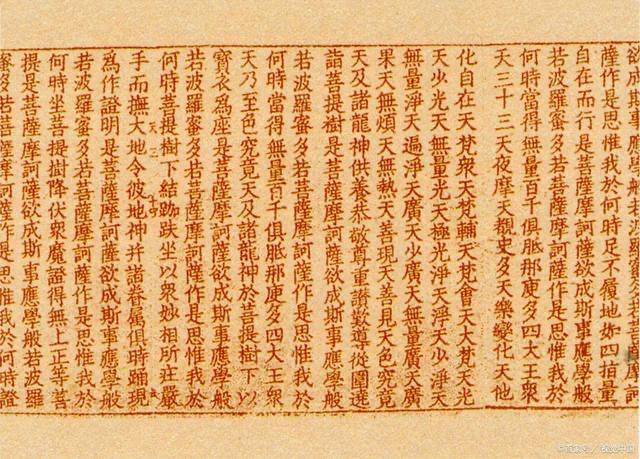 薩作是思惟我於何時足不履地如四指量
自在而行是菩薩摩訶薩欲成斯事應學般
若波羅蜜多若菩薩摩訶薩作是思惟我於
何時當得無量百千俱胝那庾多四大王衆
天三十三天夜摩天覩史多天樂變化天他
化自在天梵衆天梵輔天梵會天大梵天光
天少光天無量光天極光淨天淨天少淨天
無量淨天遍淨天廣天少廣天無量廣天廣
果天無煩天無熱天善現天善見天色究竟
天及諸龍神供養恭敬尊重讚歎導從圍遶
詣菩提樹是菩薩摩訶薩欲成斯事應學般
若波羅蜜多若菩薩摩訶薩作是思惟我於
何時當得無量百千俱胝那庾多四大王衆
天乃至色究竟天及諸龍神於菩提樹下以
寶衣為座是菩薩摩訶薩欲成斯事應學般
若波羅蜜多若菩薩摩訶薩作是思惟我於
何時菩提樹下結跏趺坐以衆妙相所莊嚴
手而撫大地令彼地神并諸眷屬俱時踊現
為作證明是菩薩摩訶薩欲成斯事應學般
若波羅蜜多若菩薩摩訶薩作是思惟我於
何時坐菩提樹降伏衆魔證得無上正等菩
提是菩薩摩訶薩欲成斯事應學般若波羅
蜜多若菩薩摩訶薩作是思惟我於何時證